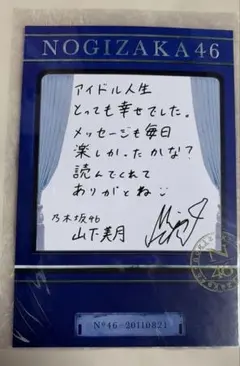 NOGIZAKA46
アイドル人生
とっても幸せでした。
メッセージも毎日
楽しかったかな?
読んでくれて
ありがとね
乃木坂46
山下美月
Nº46=20110821